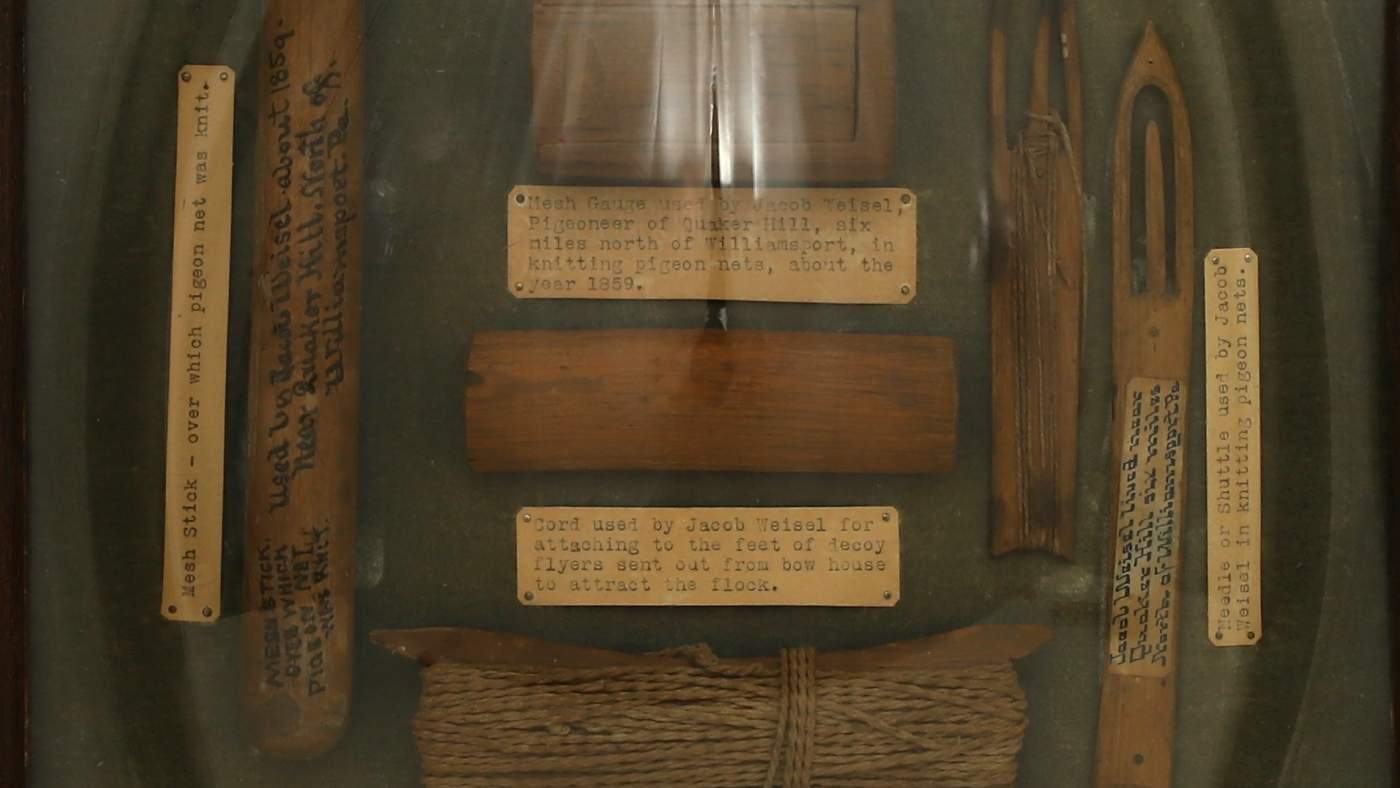 Mesh Stick - over which pigeon net was knit.
MESH STICK.
OVER WHICH
PIGEON NET
WAS KNIT.
Used by Jacob Weisel about 1859-
Near Quaker Hill. North of
Williamsport. Pa.
Mesh Gauge used by Jacob Weisel,
Pigeoneer of Quaker Hill, six
miles north of Williamsport, in
knitting pigeon nets, about the
year 1859.
Cord used by Jacob Weisel for
attaching to the feet of decoy
flyers sent out from bow house
to attract the flock.
Jacob Weisel lived near
Quaker Hill six miles
North of Williamsport Pa
Needle or Shuttle used by Jacob
Weisel in knitting pigeon nets.